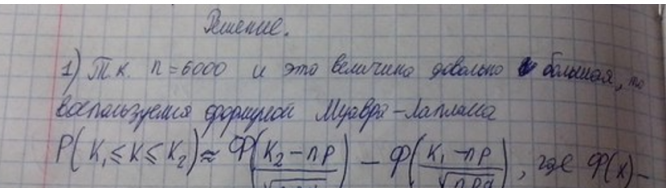 Решение.
1) Т.к. n=6000 и это величина довольно большая, то
воспользуемся формулой Муавра-Лапласа
P(K₁≤K≤K₂)≈Ф(K₂-np/√npq) - Ф(K₁-np/√npq), где Ф(x)-